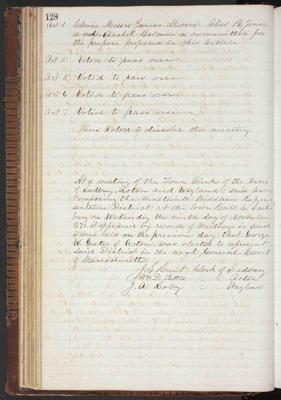 128
Art 3 Chose Messrs James Moore Abel B. Jones
and Asahel Balcom a committee for
the purpose proposed in this article
Art 4 Voted to pass over
Art 5 Voted to pass over
Art 6 Voted to pass over
Art 7 Voted to pass over
Then Voted to dissolve this meeting
At a meeting of the Town Clerks of the Towns
of Sudbury, Acton and Wayland, said Towns
composing the Nineteenth Middlesex Repre-
sentative District, at the Town Hall in Sud-
bury on Wednesday the ninth day of November
1871 it appeared by records of Meetings in said
towns held on the previous day, that George
W. Gates of Acton, was elected to represent
said District in the next General Court
of Massachusetts
J. S. Hunt Clerk of Sudbury
Wm D. Tuttle " " Acton
J. A. " " Wayland